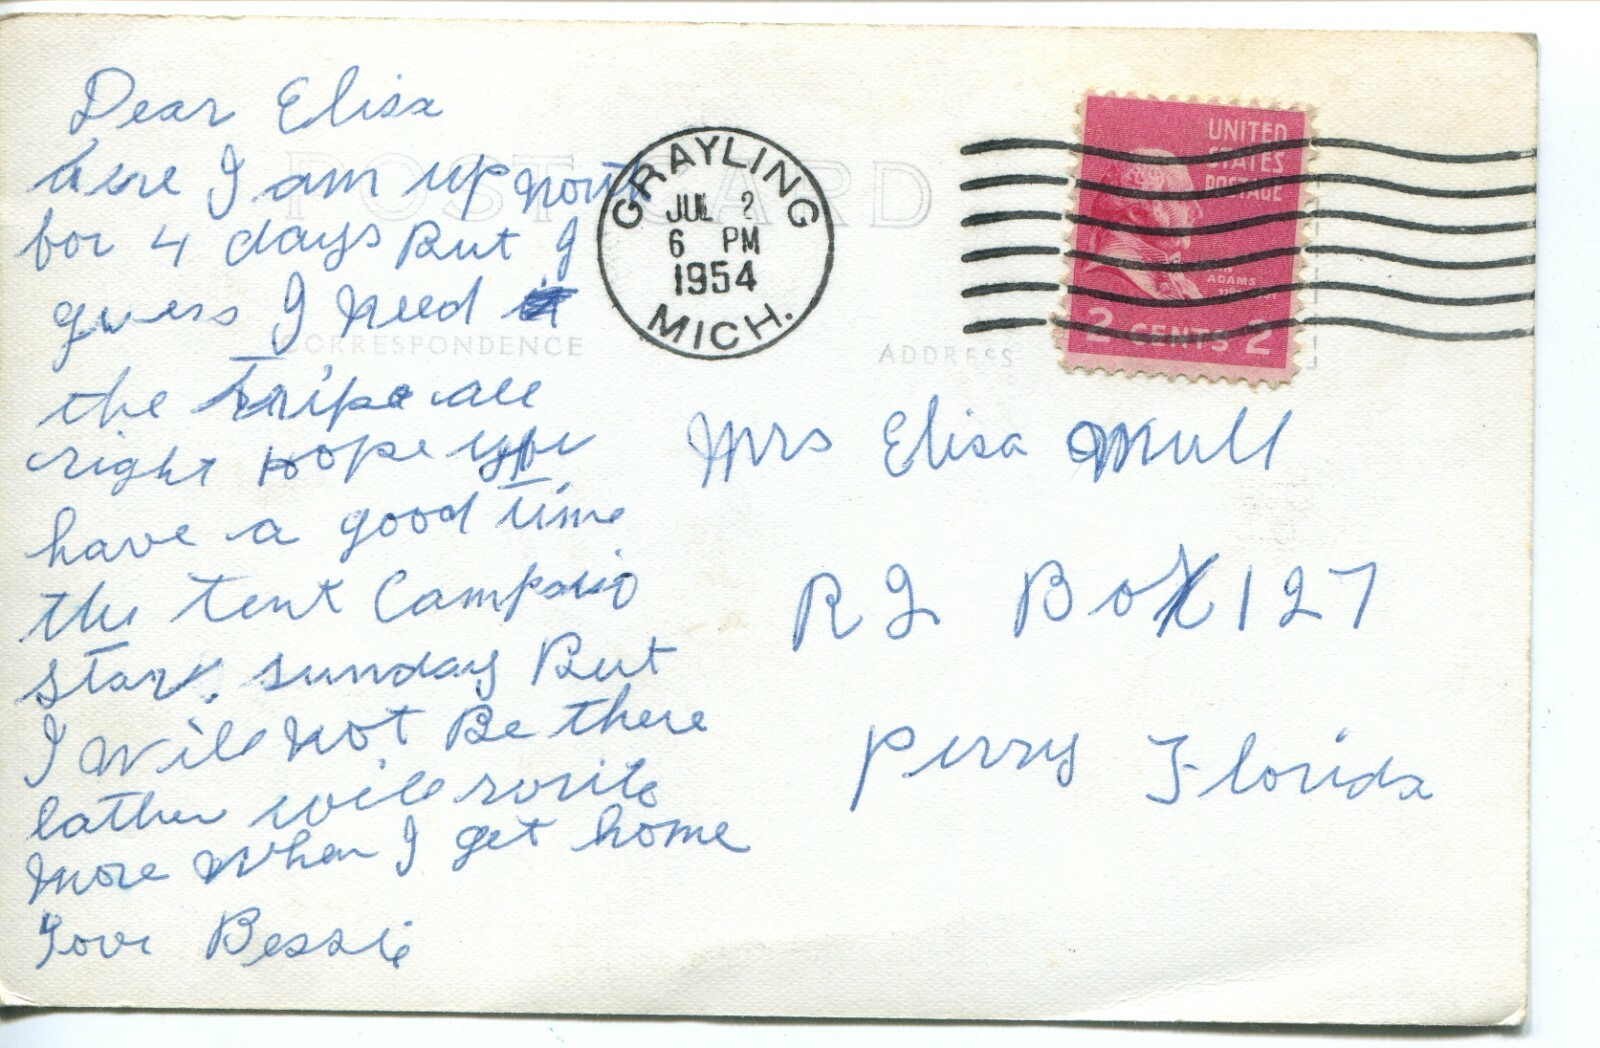 Dear Elisa
here I am up North
for 4 days But I
guess I Need
the Tripe all
right Hope you
have a good Time
the Tent Campaig
Start sunday But
I will Not Be there
lather will write
More When I get home
Love Bessie
POST CARD
CORRESPONDENCE
ADDRESS
GRAYLING
JUL 2
6 PM
1954
MICH.
UNITED
STATES
POSTAGE
ADAMS
2 CENTS 2
Mrs Elisa Mull
R2 Box 127
Perry Florida